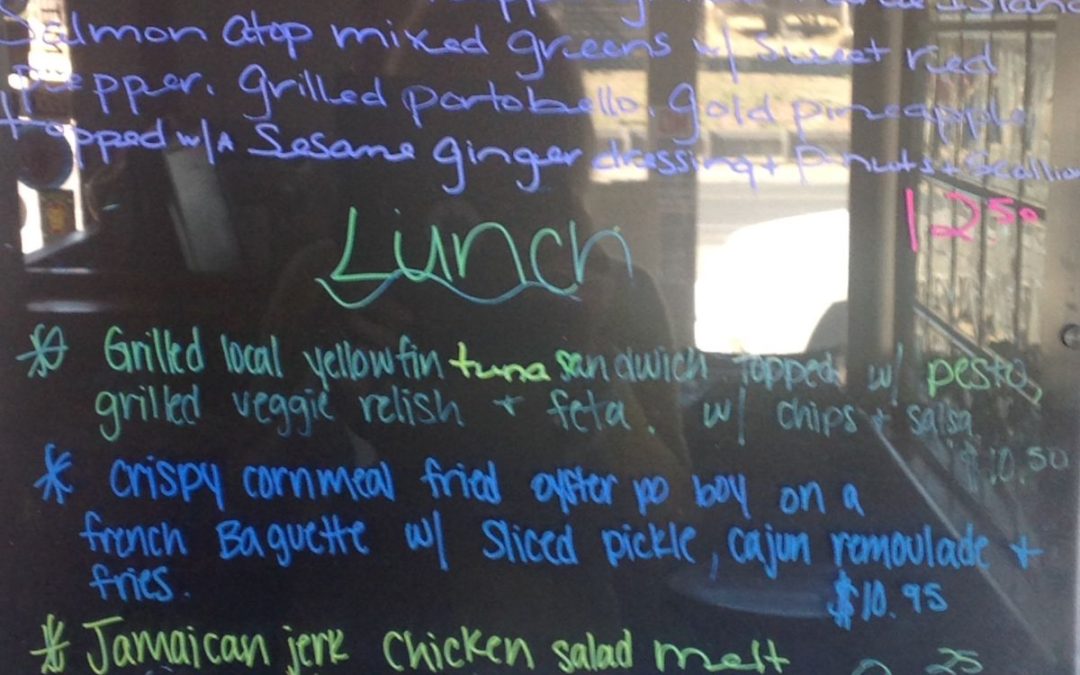 Island
Salmon atop mixed greens w/ Sweet ried
pepper, grilled portobello, gold pineapple,
topped w/A Sesame ginger dressing + P-nuts + Scallion
12.50
Lunch
* Grilled local yellowfin tuna sandwich topped w/ pesto,
grilled veggie relish + feta. w/ chips + salsa
$10.50
* Crispy cornmeal fried oyster po boy on a
french Baguette w/ Sliced pickle, cajun remoulade +
fries.
$10.95
* Jamaican jerk chicken salad melt
25